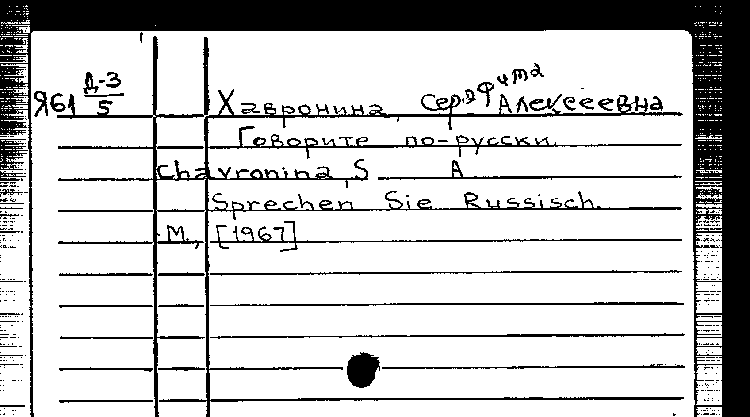 Я61 Д-3/5
Хавронина, Серафима Алексеевна
Говорите по-русски.
Chavronina, S. A.
Sprechen Sie Russisch.
М., [1967]